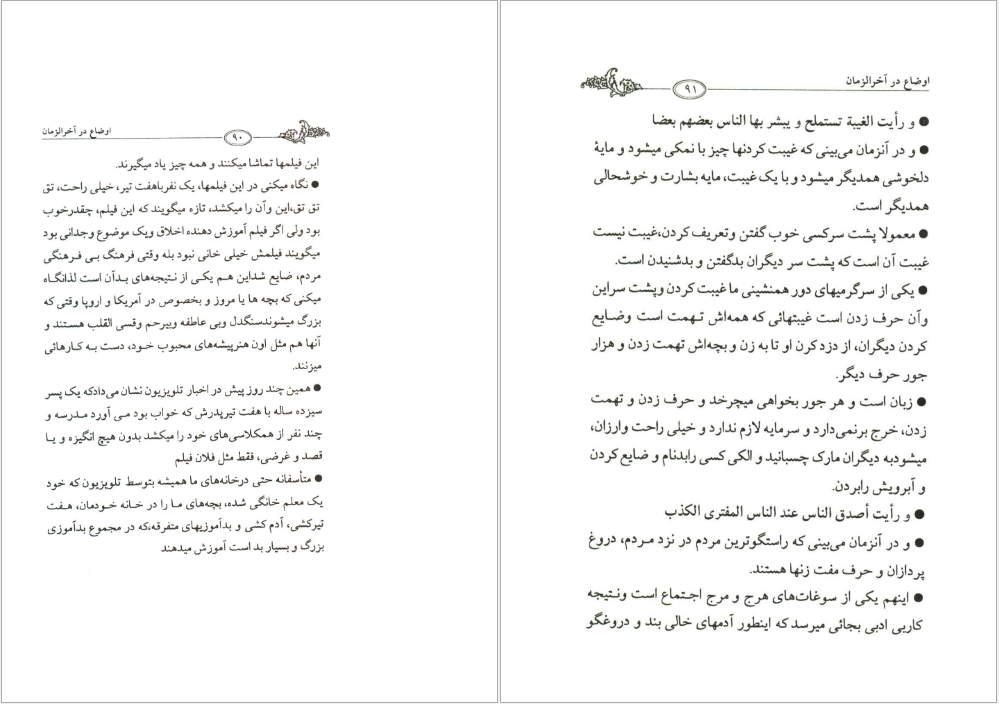 اوضاع در آخرالزمان
۹۰
این فیلمها تماشا میکنند و همه چیز یاد میگیرند.
● نگاه میکنی در این فیلمها، یک نفرباهفت تیر، خیلی راحت، تق
تق تق،این وآن را میکشد، تازه میگویند که این فیلم، چقدرخوب
بود ولی اگر فیلم آموزش دهنده اخلاق ویک موضوع وجدانی بود
میگویند فیلمش خیلی خانی نبود بله وقتی فرهنگ بی فرهنگی
مردم، ضایع شداین هم یکی از نتیجه‌های بدآن است لذانگاه
میکنی که بچه ها یا مروز و بخصوص در آمریکا و اروپا وقتی که
بزرگ میشوندسنگدل وبی عاطفه وبیرحم وقسی القلب هستند و
آنها هم مثل اون هنرپیشه‌های محبوب خود، دست به کارهائی
میزنند.
● همین چند روز پیش در اخبار تلویزیون نشان می‌دادکه یک پسر
سیزده ساله با هفت تیرپدرش که خواب بود می آورد مدرسه و
چند نفر از همکلاسی‌های خود را میکشد بدون هیچ انگیزه و یا
قصد و غرضی، فقط مثل فلان فیلم
● متأسفانه حتی درخانه‌های ما همیشه بتوسط تلویزیون که خود
یک معلم خانگی شده، بچه‌های ما را در خانه خودمان، هفت
تیرکشی، آدم کشی و بدآموزیهای متفرقه،که در مجموع بدآموزی
بزرگ و بسیار بد است آموزش میدهند
اوضاع در آخرالزمان
۹۱
● و رأیت الغیبة تستملح و یبشر بها الناس بعضهم بعضا
● و در آنزمان می‌بینی که غیبت کردنها چیز با نمکی میشود و مایهٔ
دلخوشی همدیگر میشود و با یک غیبت، مایه بشارت و خوشحالی
همدیگر است.
● معمولا پشت سرکسی خوب گفتن وتعریف کردن،غیبت نیست
غیبت آن است که پشت سر دیگران بدگفتن و بدشنیدن است.
● یکی از سرگرمیهای دور همنشینی ما غیبت کردن وپشت سراین
وآن حرف زدن است غیبتهائی که همه‌اش تهمت است وضایع
کردن دیگران، از دزدکرن او تا به زن و بچه‌اش تهمت زدن و هزار
جور حرف دیگر.
● زبان است و هر جور بخواهی میچرخد و حرف زدن و تهمت
زدن، خرج برنمی‌دارد و سرمایه لازم ندارد و خیلی راحت وارزان،
میشودبه دیگران مارک چسبانید و الکی کسی رابدنام و ضایع کردن
و آبرویش رابردن.
● و رأیت أصدق الناس عند الناس المفتری الکذب
● و در آنزمان می‌بینی که راستگوترین مردم در نزد مردم، دروغ
پردازان و حرف مفت زنها هستند.
● اینهم یکی از سوغات‌های هرج و مرج اجتماع است ونتیجه
کاربی ادبی بجائی میرسد که اینطور آدمهای خالی بند و دروغگو